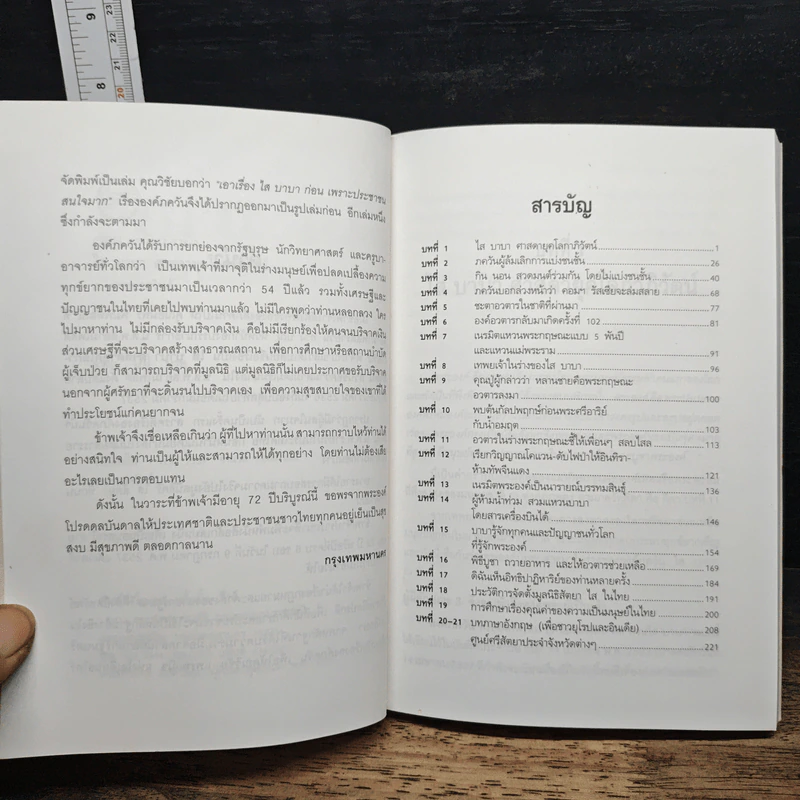 จัดพิมพ์เป็นเล่ม คุณวิชัยบอกว่า "เอาเรื่อง ไส บาบา ก่อน เพราะประชาชน
สนใจมาก" เรื่ององค์ภควันจึงได้ปรากฏออกมาเป็นรูปเล่มก่อน อีกเล่มหนึ่ง
ซึ่งกำลังจะตามมา
องค์ภควันได้รับการยกย่องจากรัฐบุรุษ นักวิทยาศาสตร์ และครูบา-
อาจารย์ทั่วโลกว่า เป็นเทพเจ้าที่มาจุติในร่างมนุษย์เพื่อปลดเปลื้องความ
ทุกข์ยากของประชาชนมาเป็นเวลากว่า 54 ปีแล้ว รวมทั้งเศรษฐีและ
ปัญญาชนในไทยที่เคยไปพบท่านมาแล้ว ไม่มีใครพูดว่าท่านหลอกลวง ใคร
ไปมาหาท่าน ไม่มีกล่องรับบริจาคเงิน คือไม่มีเรียกร้องให้คนจนบริจาคเงิน
ส่วนเศรษฐีที่จะบริจาคสร้างสาธารณสถาน เพื่อการศึกษาหรือสถานบำบัด
ผู้เจ็บป่วย ก็สามารถบริจาคที่มูลนิธิ แต่มูลนิธิก็ไม่เคยประกาศขอรับบริจาค
นอกจากผู้ศรัทธาที่จะดิ้นรนไปบริจาคเอง เพื่อความสุขสบายใจของเขาที่ได้
ทำประโยชน์แก่คนยากจน
ข้าพเจ้าจึงเชื่อเหลือเกินว่า ผู้ที่ไปหาท่านนั้น สามารถกราบไหว้ท่านได้
อย่างสนิทใจ ท่านเป็นผู้ให้และสามารถให้ได้ทุกอย่าง โดยท่านไม่ต้องเสีย
อะไรเลยเป็นการตอบแทน
ดังนั้น ในวาระที่ข้าพเจ้ามีอายุ 72 ปีบริบูรณ์นี้ ขอพรจากพระองค์
โปรดดลบันดาลให้ประเทศชาติและประชาชนชาวไทยทุกคนอยู่เย็นเป็นสุข
สงบ มีสุขภาพดี ตลอดกาลนาน
กรุงเทพมหานคร
สารบัญ
บทที่ 1 ไส บาบา ศาสดายุคโลกาภิวัตน์ 1
บทที่ 2 ภควันผู้ล้มเลิกการแบ่งชนชั้น 26
บทที่ 3 กิน นอน สวดมนต์ร่วมกัน โดยไม่แบ่งชนชั้น 40
บทที่ 4 ภควันบอกล่วงหน้าว่า คอมฯ รัสเซียจะล่มสลาย 68
บทที่ 5 ชะตาอวตารในชาติที่ผ่านมา 77
บทที่ 6 องค์อวตารกลับมาเกิดครั้งที่ 102 81
บทที่ 7 เนรมิตแหวนพระกฤษณะแบบ 5 พันปี
และแหวนแม่พระราม 91
บทที่ 8 เทพยเจ้าในร่างของไส บาบา 96
บทที่ 9 คุณปู่ผู้กล่าวว่า หลานชายคือพระกฤษณะ
อวตารลงมา 100
บทที่ 10 พบต้นกัลปพฤกษ์ก่อนพระศรีอาริย์
กับน้ำอมฤต
บทที่ 11 อวตารในร่างพระกฤษณะชี้ให้เพื่อนๆ สลบไสล 113
บทที่ 12 เรียกวิญญาณโคแวน-ดับไฟป่าให้อินทิรา-
ห้ามทัพจีนแดง 121
บทที่ 13 เนรมิตพระองค์เป็นนารายณ์บรรทมสินธุ์ 136
บทที่ 14 ผู้ห้ามน้ำท่วม สวมแหวนบาบา
โดยสารเครื่องบินได้ 146
บทที่ 15 บาบารู้จักทุกคนและปัญญาชนทั่วโลก
ที่รู้จักพระองค์ 154
บทที่ 16 พิธีบูชา ถวายอาหาร และให้อวตารช่วยเหลือ 169
บทที่ 17 ดิฉันเห็นอิทธิปาฏิหาริย์ของท่านหลายครั้ง 184
บทที่ 18 ประวัติการจัดตั้งมูลนิธิสัตยา ไส ในไทย 191
บทที่ 19 การศึกษาเรื่องคุณค่าของความเป็นมนุษย์ในไทย 200
บทที่ 20-21 บทภาษาอังกฤษ (เพื่อชาวยุโรปและอินเดีย) 208
ศูนย์ศรีสัตยาประจำจังหวัดต่างๆ 221
9
8
23
22
21
20